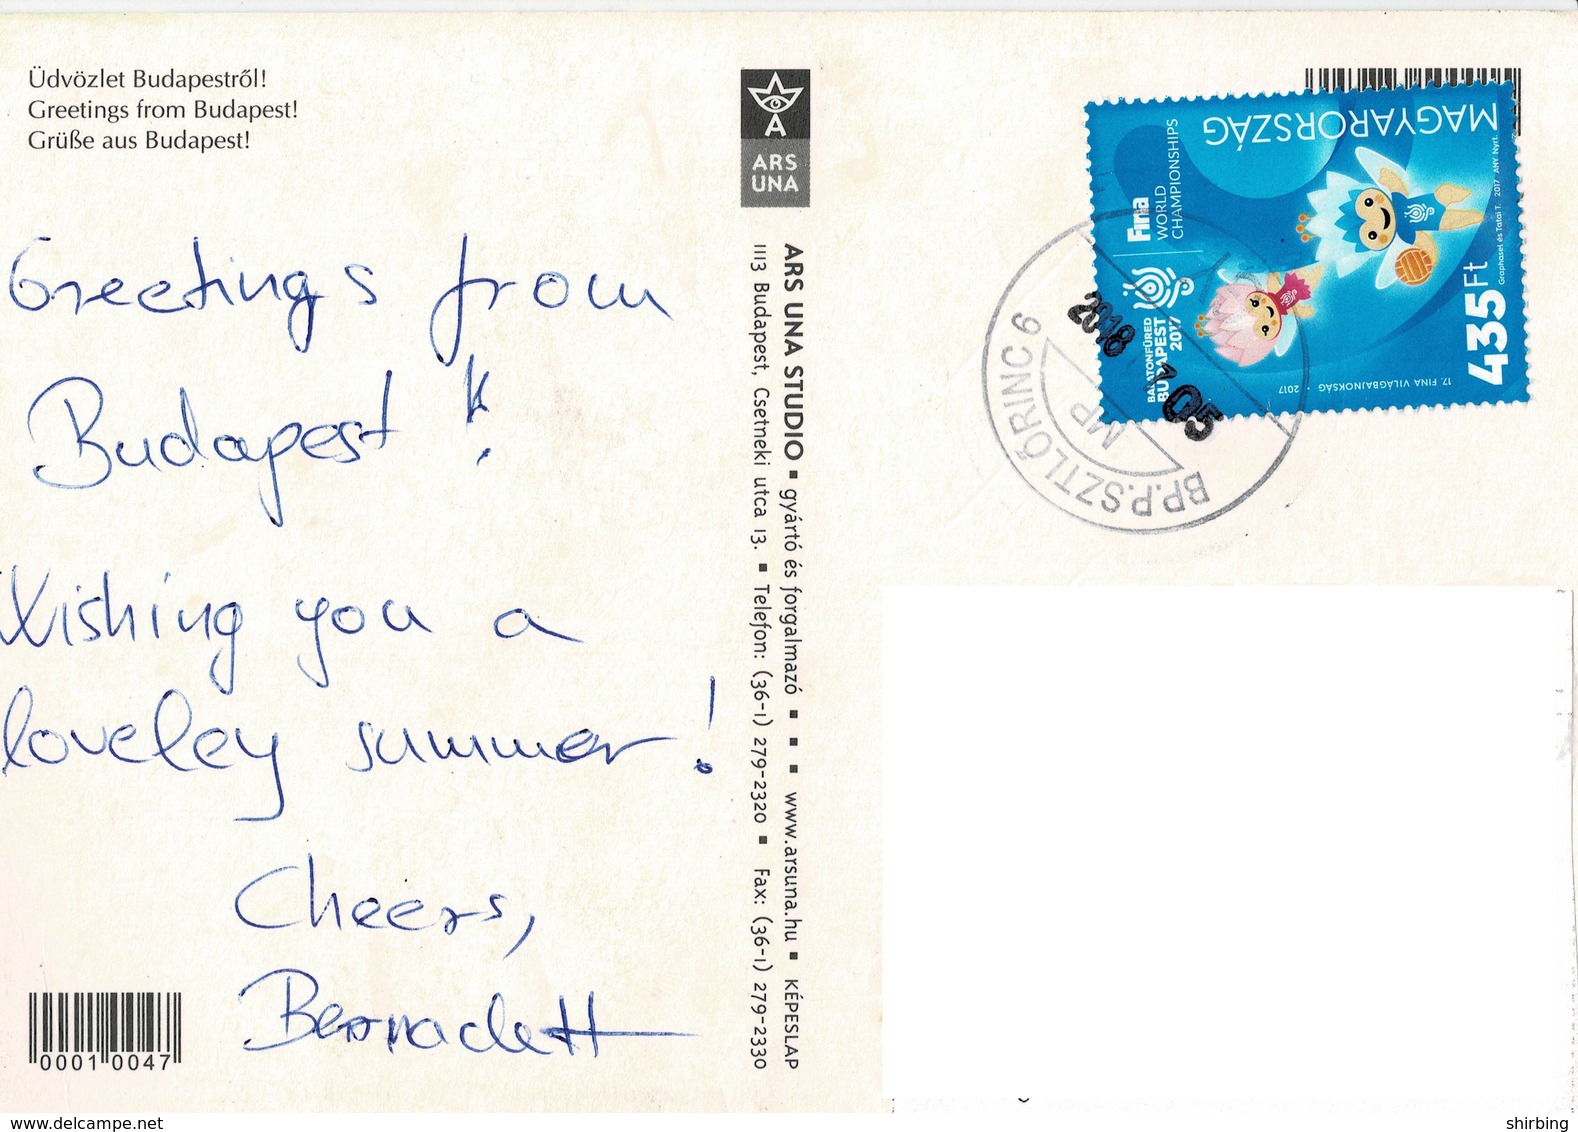 Üdvözlet Budapestről!
Greetings from Budapest!
Grüße aus Budapest!
Greetings from
Budapest!
Wishing you a
loveley summer!
Cheers,
Bernadett
0001 0047
A
ARS
UNA
ARS UNA STUDIO ▪ gyártó és forgalmazó ▪ ▪ ▪ www.arsuna.hu ▪ KÉPESLAP
1113 Budapest, Csetneki utca 13. ▪ Telefon: (36-1) 279-2320 ▪ Fax: (36-1) 279-2330
MAGYARORSZÁG
Fina
WORLD
CHAMPIONSHIPS
BALATONFÜRED
BUDAPEST
2017
435 Ft
17. FINA VILÁGBAJNOKSÁG • 2017
Graphasel és Tatai T. 2017 ANY Nyrt.
BP.P.SZTLŐRINC 6
MP
2018
05
delcampe.net
shirbing